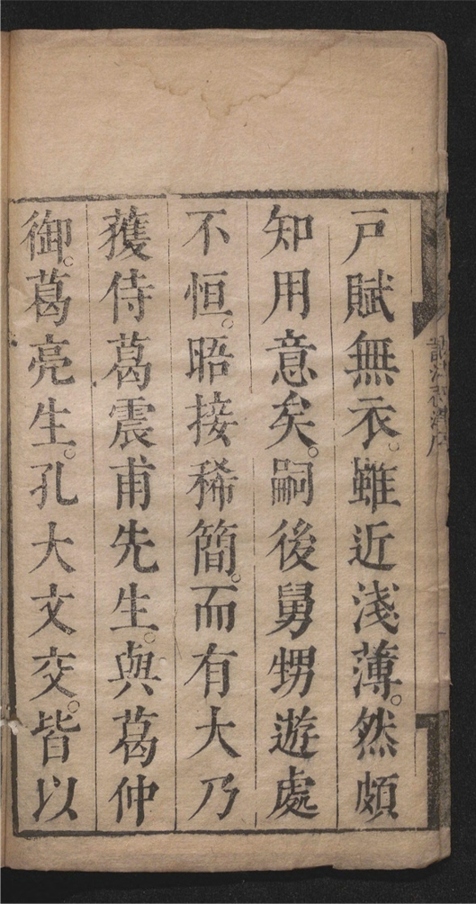 戸賦無衣。雖近淺薄。然頗
知用意矣。嗣後舅甥遊處
不恒。晤接稀簡。而有大乃
獲侍葛震甫先生。與葛仲
御。葛亮生。孔大文交。皆以